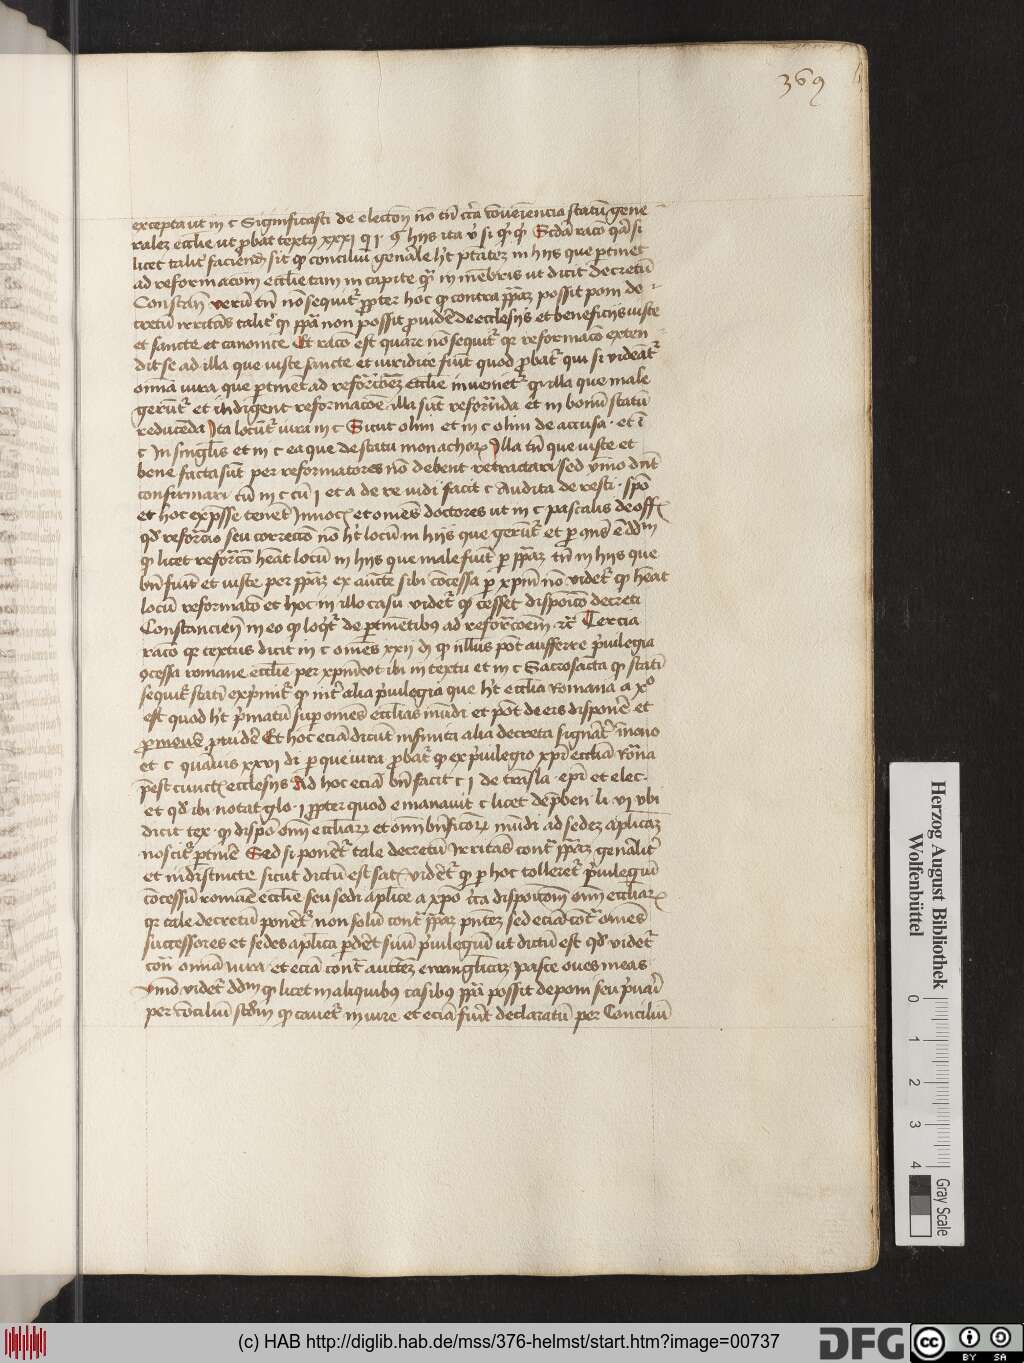 369
excepta ut in c Significasti de election nō tn̄ cc̄a cōveniencia statū gene
rales eccl̄ie ut probat textus xxxi q̄ i hijs ita Scdā racō
licet talit̄ faciend̄ sit qꝫ conciliū gen̄ale ht̄ ptātez in hijs que ptinet
ad reformacōm eccl̄ie tam in capite qꝫ in mēbris ut dicit decretū
Constan̄ verū tn̄ nō sequit̄ propter hoc qꝫ contra pp̄az possit poni de
cretū irritās talit̄ qꝫ pp̄a non possit providē de ecclesijs et beneficijs iuste
et sancte et canonice Et racō est quare nō sequit̄ qꝛ reformacō exten
dit se ad illa que iuste sancte et iuridice fiūt quod probat̄ qui si videat̄
omnia iura que ptinet ad eccl̄ie inveniet̄ qꝫ illa que male
gerūt̄ et indigent reformacōe illa sūt refor̄nda et in bonū statū
reducēda Ita locūt̄ iura in c Sicut olim et in c olim de accusa et ī
c In singl̄is et in c ea que de statu monachoꝝ Illa tn̄ que iuste et
bene facta sūt per reformatores nō debent retractari sed ymo dn̄t
confirmari tn̄ in c cū i et a de re iudi facit c Audita de resti spō
et hoc exp̄sse tenet Innoc et omēs doctores ut in c pastalis de off
qd̄ refor̄cio seu correctō nō ht̄ locū in hijs que gerūt̄ et p 9ns ē dd̄m
qꝫ licet refor̄cō heāt locū in hijs que male fiūt p pp̄az tn̄ in hijs que
bn̄ fiūt et iuste per pp̄az ex aucte sibi cōcessa p xpm̄ nō videt̄ qꝫ heāt
locū reformatō et hoc in illo casu videt̄ qꝫ cesset dispoicō decreti
Constancien̄ in eo qꝫ loqt̄ de ptinētibus ad refor̄coēm Tercia
racō qꝛ textus dicit in c omēs xxii d qꝫ nllus pōt aufferre p̄vilegia
9cessa romane eccl̄ie per xpm̄ ut ibi in textu et in c Sacrosācta qꝫ statī
sequit̄ statī exp̄mit̄ qꝫ int̄ alia p̄vilegia que ht̄ eccl̄ia romana a xº
est quod ht̄ p̄matū sup omēs eccl̄ias mūdi et pōt de eis disponē et
promovē providē Et hoc eciā dicūt infiniti alia decreta signāt̄
et c quāvis xxvi di p que iura probat̄ qꝫ ex p̄vilegio xpi eccl̄ia rōna
p̄est cunctis ecclesijs Ad hoc eciā bn̄ facit c i de trāsla epi et elec
et qd̄ ibi notat glo i propter quod emanavit c licet de p̄ben li vi ubi
dicit tex qꝫ dispō omi eccl̄iaꝝ et omi bn̄ficoꝝ mūdi ad sedez aplicaz
noscit̄ ptinē Sed si ponet̄ tale decretū Irritās cont̄ pp̄az gen̄alit̄
et indistincte sicut dictū est satis videt̄ qꝫ p hoc tolleret̄ p̄vilegiū
cōcessū romāe eccl̄ie seu sedi aplice a xpō cc̄a dispoicōm omi eccl̄iaꝝ
qꝛ tale decretū ponet̄ non solū cont̄ pp̄az pn̄tez sed eciā cont̄ omēs
successores et sedes aplica pdēt suū p̄vilegiū ut dictū est qd̄ videt̄
con̄ omnia iura et eciā cont̄ auctez ewangelicaz Pasce oves meas
ymo videt̄ dd̄m qꝫ licet in aliquibus casibus pp̄a possit deponi seu p̄vari
per cōciliū scd̄m qꝫ cavet̄ in iure et eciā fuit declaratū per Conciliū
Herzog August Bibliothek
Wolfenbüttel
0 1 2 3 4
Gray Scale
(c) HAB http://diglib.hab.de/mss/376-helmst/start.htm?image=00737
DFG
cc
BY SA